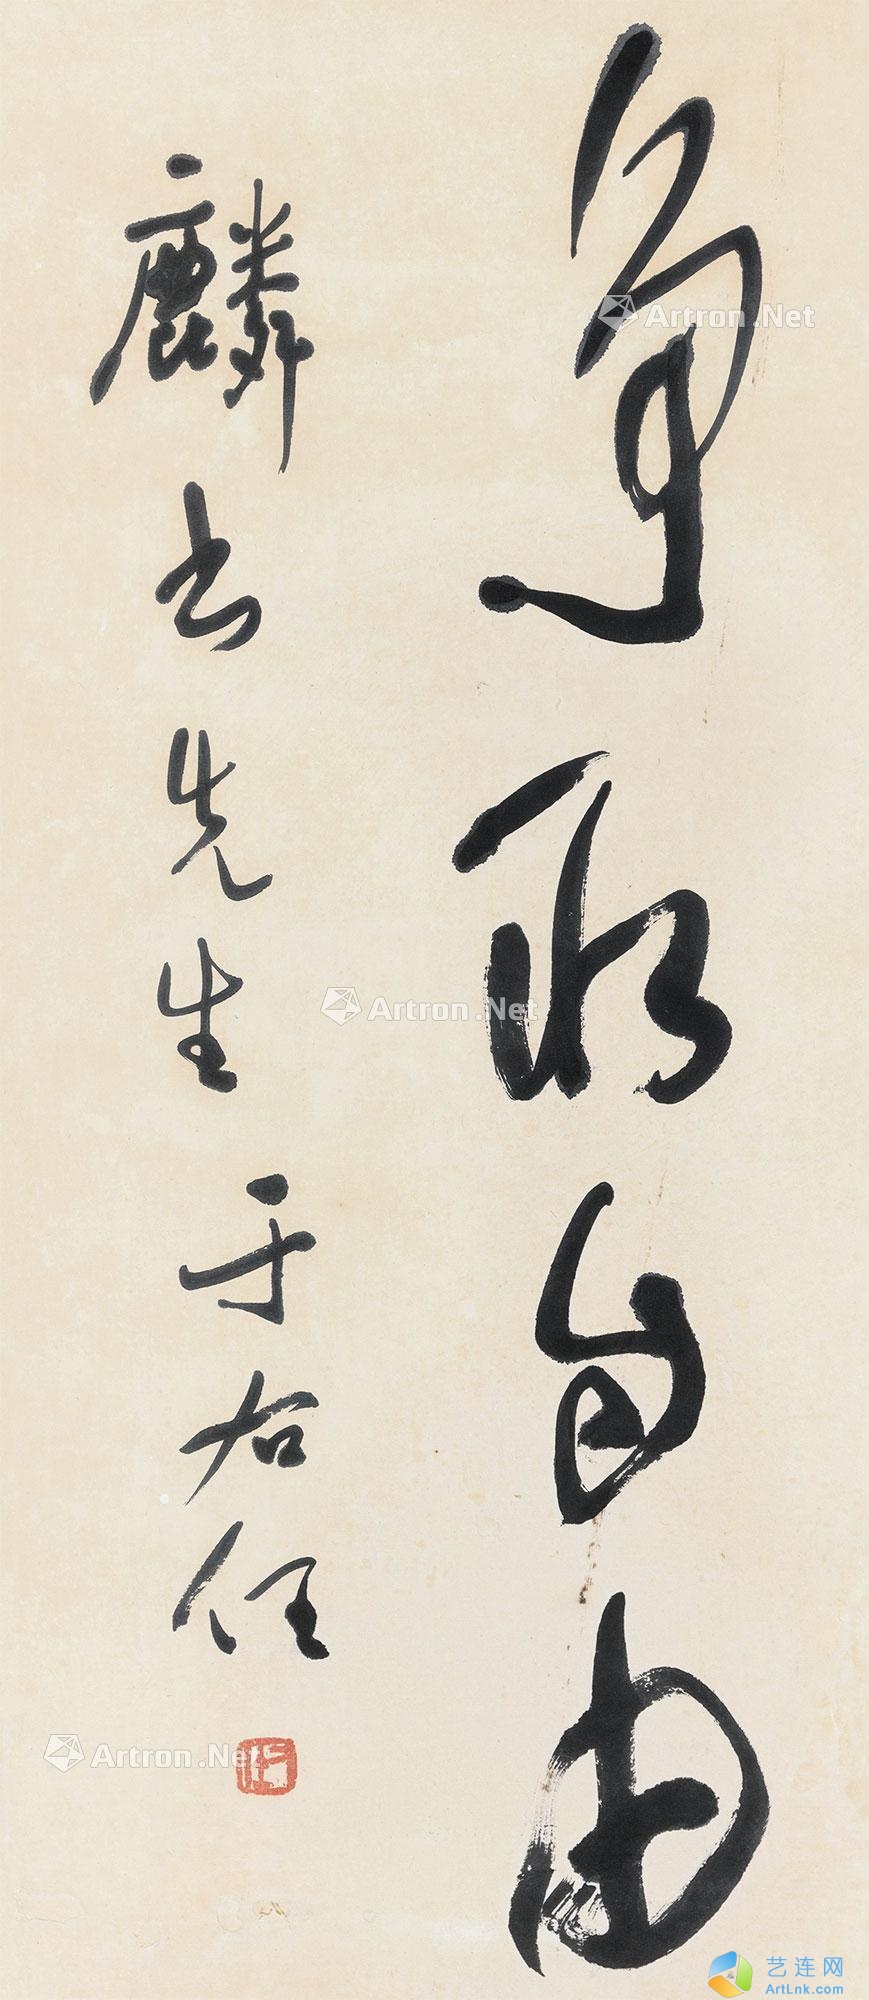 争取自由
麟书先生 于右任
Artron.Net
Artron.Net
Artron.Net
艺连网
ArtLnk.com